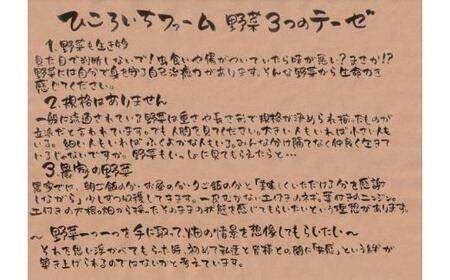 ひころいちファーム 野菜 3つのテーゼ
1. 野菜も生き物
見た目で判断しないで!虫食いや傷がついていたら味が悪い?まさか!?
野菜には自分で身を守る自己治癒力があります。そんな野菜から生命力を
感じてください。
2. 規格はありません
一般に流通されている野菜は重さや長さ等で規格が決められ揃ったものが
立派だと言われています。でも人間を見てください。大きい人もいれば小さい人も
いる。細い人もいればふくよかな人もいる。みんな分け隔てなく仲良く生きて
いるじゃないですか。野菜もいっしょに見てもらえたらと…
3. 農家の野菜
農家では、朝ご飯の分・お昼の分・夕ご飯の分と「美味しくいただける分を感謝
しながら」少しずつ収穫してます。一皮むかない土付きのネギ。葉付きのニンジン。
土付きの大根。畑から採ったそのままの状態を感じてもらいたいという理想があります。
~ 野菜一つ一つを手に取って、畑の情景を想像してもらいたい ~
それを思い浮かべてもらった時、初めて私達と皆様との間に「安心」という絆が
築き上げられるのではないかと考えています。